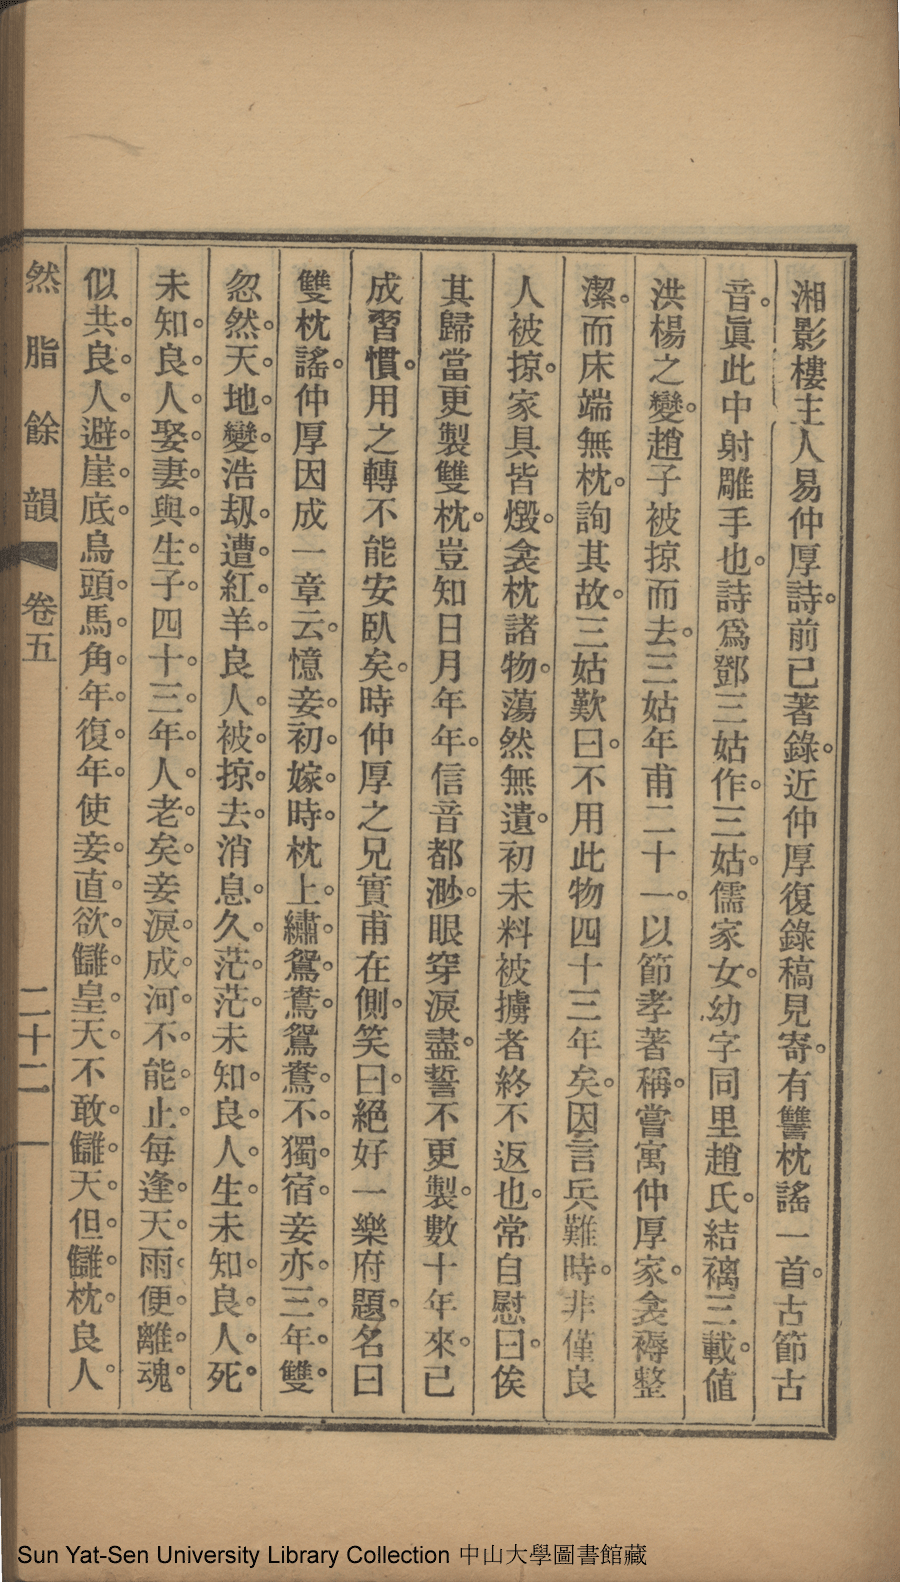 湘影樓主人易仲厚詩。前已著錄。近仲厚復錄稿見寄。有讐枕謠一首。古節古
音。眞此中射雕手也。詩爲鄧三姑作。三姑儒家女。幼字同里趙氏。結褵三載。値
洪楊之變。趙子被掠而去。三姑年甫二十一。以節孝著稱。嘗寓仲厚家。衾褥整
潔。而床端無枕。詢其故。三姑歎曰。不用此物四十三年矣。因言兵難時。非僅良
人被掠。家具皆燬。衾枕諸物。蕩然無遺。初未料被擄者終不返也。常自慰曰。俟
其歸當更製雙枕。豈知日月年年。信音都渺。眼穿淚盡。誓不更製。數十年來。已
成習慣。用之轉不能安臥矣。時仲厚之兄實甫在側。笑曰。絕好一樂府題。名曰
雙枕謠。仲厚因成一章云。憶妾初嫁時。枕上繡鴛鴦。鴛鴦不獨宿。妾亦三年雙。
忽然天地變。浩刼遭紅羊。良人被掠去。消息久茫茫。未知良人生。未知良人死。
未知良人娶妻與生子。四十三年人老矣。妾淚成河不能止。每逢天雨便離魂。
似共良人避崖底。烏頭馬角年復年。使妾直欲讎皇天。不敢讎天但讎枕。良人
然脂餘韻
卷五
二十二
Sun Yat-Sen University Library Collection 中山大學圖書館藏